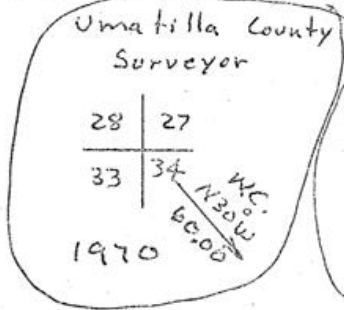 Umatilla County
Surveyor
28 27
33 34
W.C.
N30°W
60.00
1970